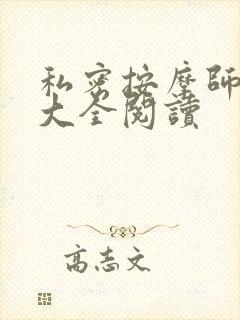 私密按摩師
大全閱讀
高志文